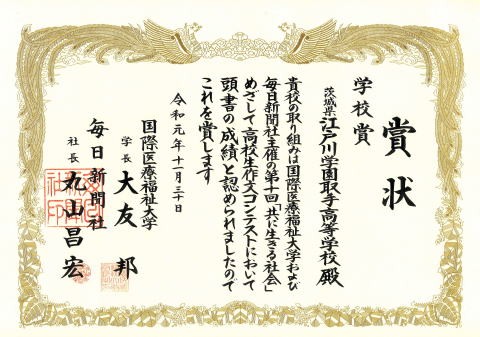 賞状
学校賞
茨城県江戸川学園取手高等学校 殿
貴校の取り組みは国際医療福祉大学および
毎日新聞社主催の第十回「共に生きる社会」
めざして高校生作文コンテストにおいて
頭書の成績と認められましたので
これを賞します
令和元年十一月三十日
国際医療福祉大学
学長 大友 邦
毎日新聞社
社長 丸山昌宏